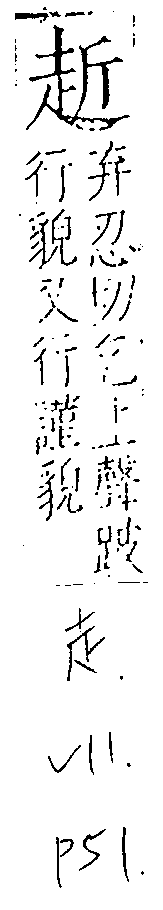 赾
弃忍切乞上聲跛
行貌又行謹貌
走.
VII.
p51.